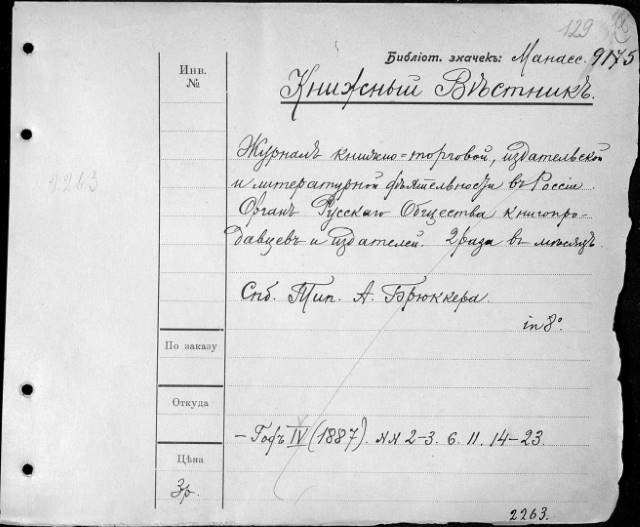 129
Библіот. значекъ: Манасс. 9175
Инв.
№
Книжный Вѣстникъ.
Журналъ книжно=торговой, издательской
и литературной дѣятельности въ Россіи
Органъ Русскаго Общества книгопро-
давцевъ и издателей. 2 раза въ мѣсяцъ.
2263
Спб. Тип. А. Брюккера.
in 8°.
По заказу
Откуда
- Годъ IV (1887). №№ 2-3. 6. 11. 14-23.
Цѣна
3р.
2263.